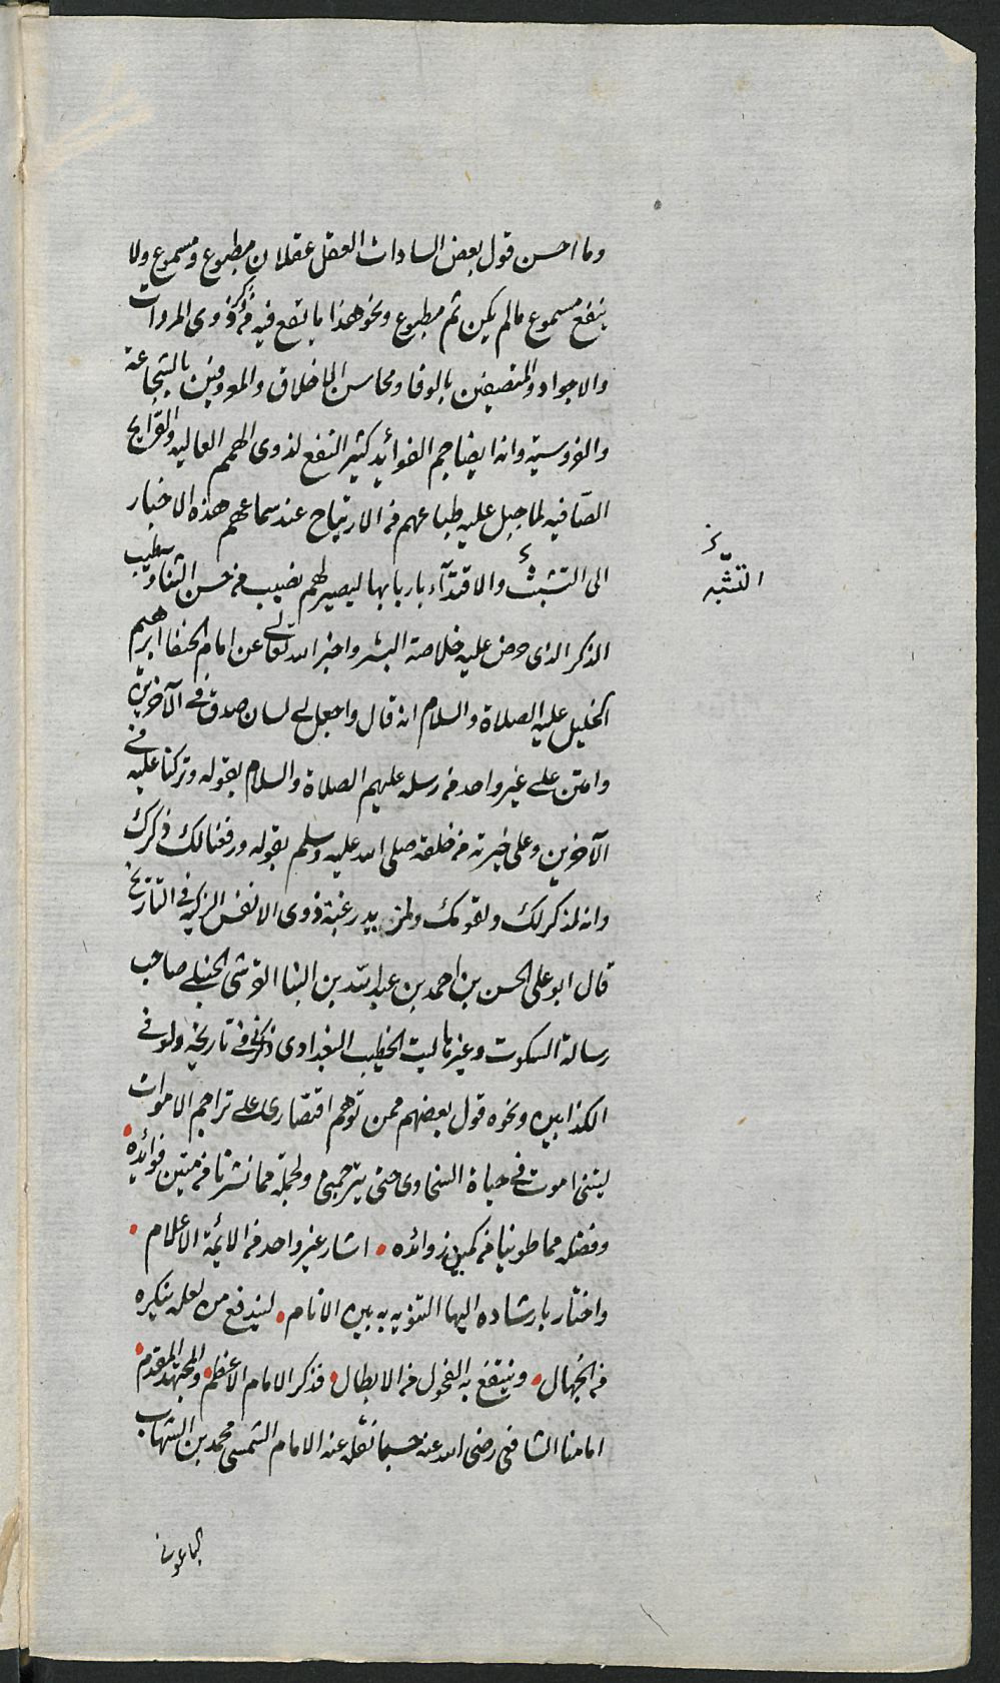 وما احسن قول بعض السادات العقل عقلان مطبوع ومسموع ولا
ينفع مسموع مالم يكن ثم مطبوع ونحو هذا ما يقع فيه من ذكر ذوى المروات
والاجواد والمتصفين بالوفا ومحاسن الاخلاق والمعروفين بالشجاعة
والفروسية وانه ايضا جم الفوائد كثير النفع لذوى الهمم العالية والقرائح
الصافيه لما جبل عليه طباعهم من الارتياح عند سماعهم هذه الاخبار
الى التشبث والاقتدآء باربابها ليصير لهم نصيب من حسن الثنا وطيب
التشبه
الذكر الذى حض عليه خلاصة البشر واخبر الله تعالى عن امام الحنفا ابرهيم
الخليل عليه الصلاة والسلام انه قال واجعل لى لسان صدق فى الآخرين
وامتن على غير واحد من رسله عليهم الصلاة والسلام بقوله وتركنا عليه فى
الآخرين وعلى خيرته من خلقه صلى الله عليه وسلم بقوله ورفعنا لك ذكرك
وانه لذكر لك ولقومك ولمزيد رغبة ذوى الانفس الزكيه فى التاريخ
قال ابو على الحسن بن احمد بن عبد الله بن البنا القرشى الحنبلى صاحب
رسالة السكوت وغيرها ليت الخطيب البغدادى ذكرنى فى تاريخه ولو فى
الكذابين ونحوه قول بعضهم ممن توهم اقتصارى على تراجم الاموات
ليتنى اموت فى حياة السخاوى حتى يترجمنى ولجملة مما نشرنا من متين فوائده
وفضله مما طوينا من كمين زوائده اشار غير واحد من الائمة الاعلام
واختار بارشاده اليها التنويه به بين الانام ليندفع من لعله ينكره
من الجهال وينتفع به الفحول من الابطال فذكر الامام الاعظم والمجتهد المقدم
امامنا الشافعى رضى الله عنه حسبما نقله عنه الامام الشمسى محمد بن الشهاب
الباعونى